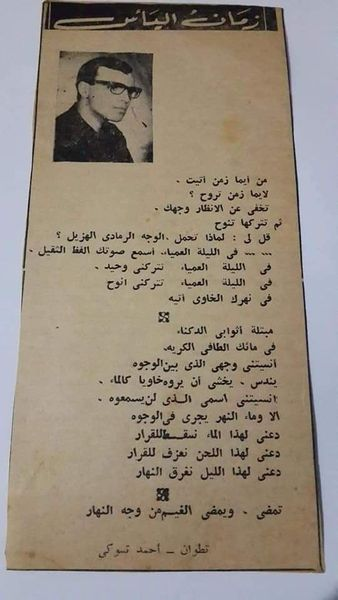 زمان اليأس
من أيما زمن أتيت .
لايما زمن تروح ؟
تخفى عن الانظار وجهك .
ثم تتركها تنوح
قل لى : لماذا تحمل . الوجه الرمادى الهزيل ؟
... ... فى الليلة العمياء . أسمع صوتك الفظ الثقيل .
فى الليلة العمياء تتركنى وحيد .
فى الليلة العمياء تتركنى أنوح
فى نهرك الخاوى أتيه
مبتلة أثوابى الدكناء
فى مائك الطافى الكريه.
أنسيتنى وجهى الذى بين الوجوه
يندس . يخشى أن يروه خاويا كالماء .
أنسيتنى اسمى الذى لن يسمعوه .
الا وماء النهر يجرى فى الوجوه
دعنى لهذا الماء نسقط للقرار
دعنى لهذا اللحن نعزف للقرار
دعنى لهذا الليل نغرق النهار
تمضى . ويمضى الغيم من وجه النهار
تطوان ــ أحمد تسوكي